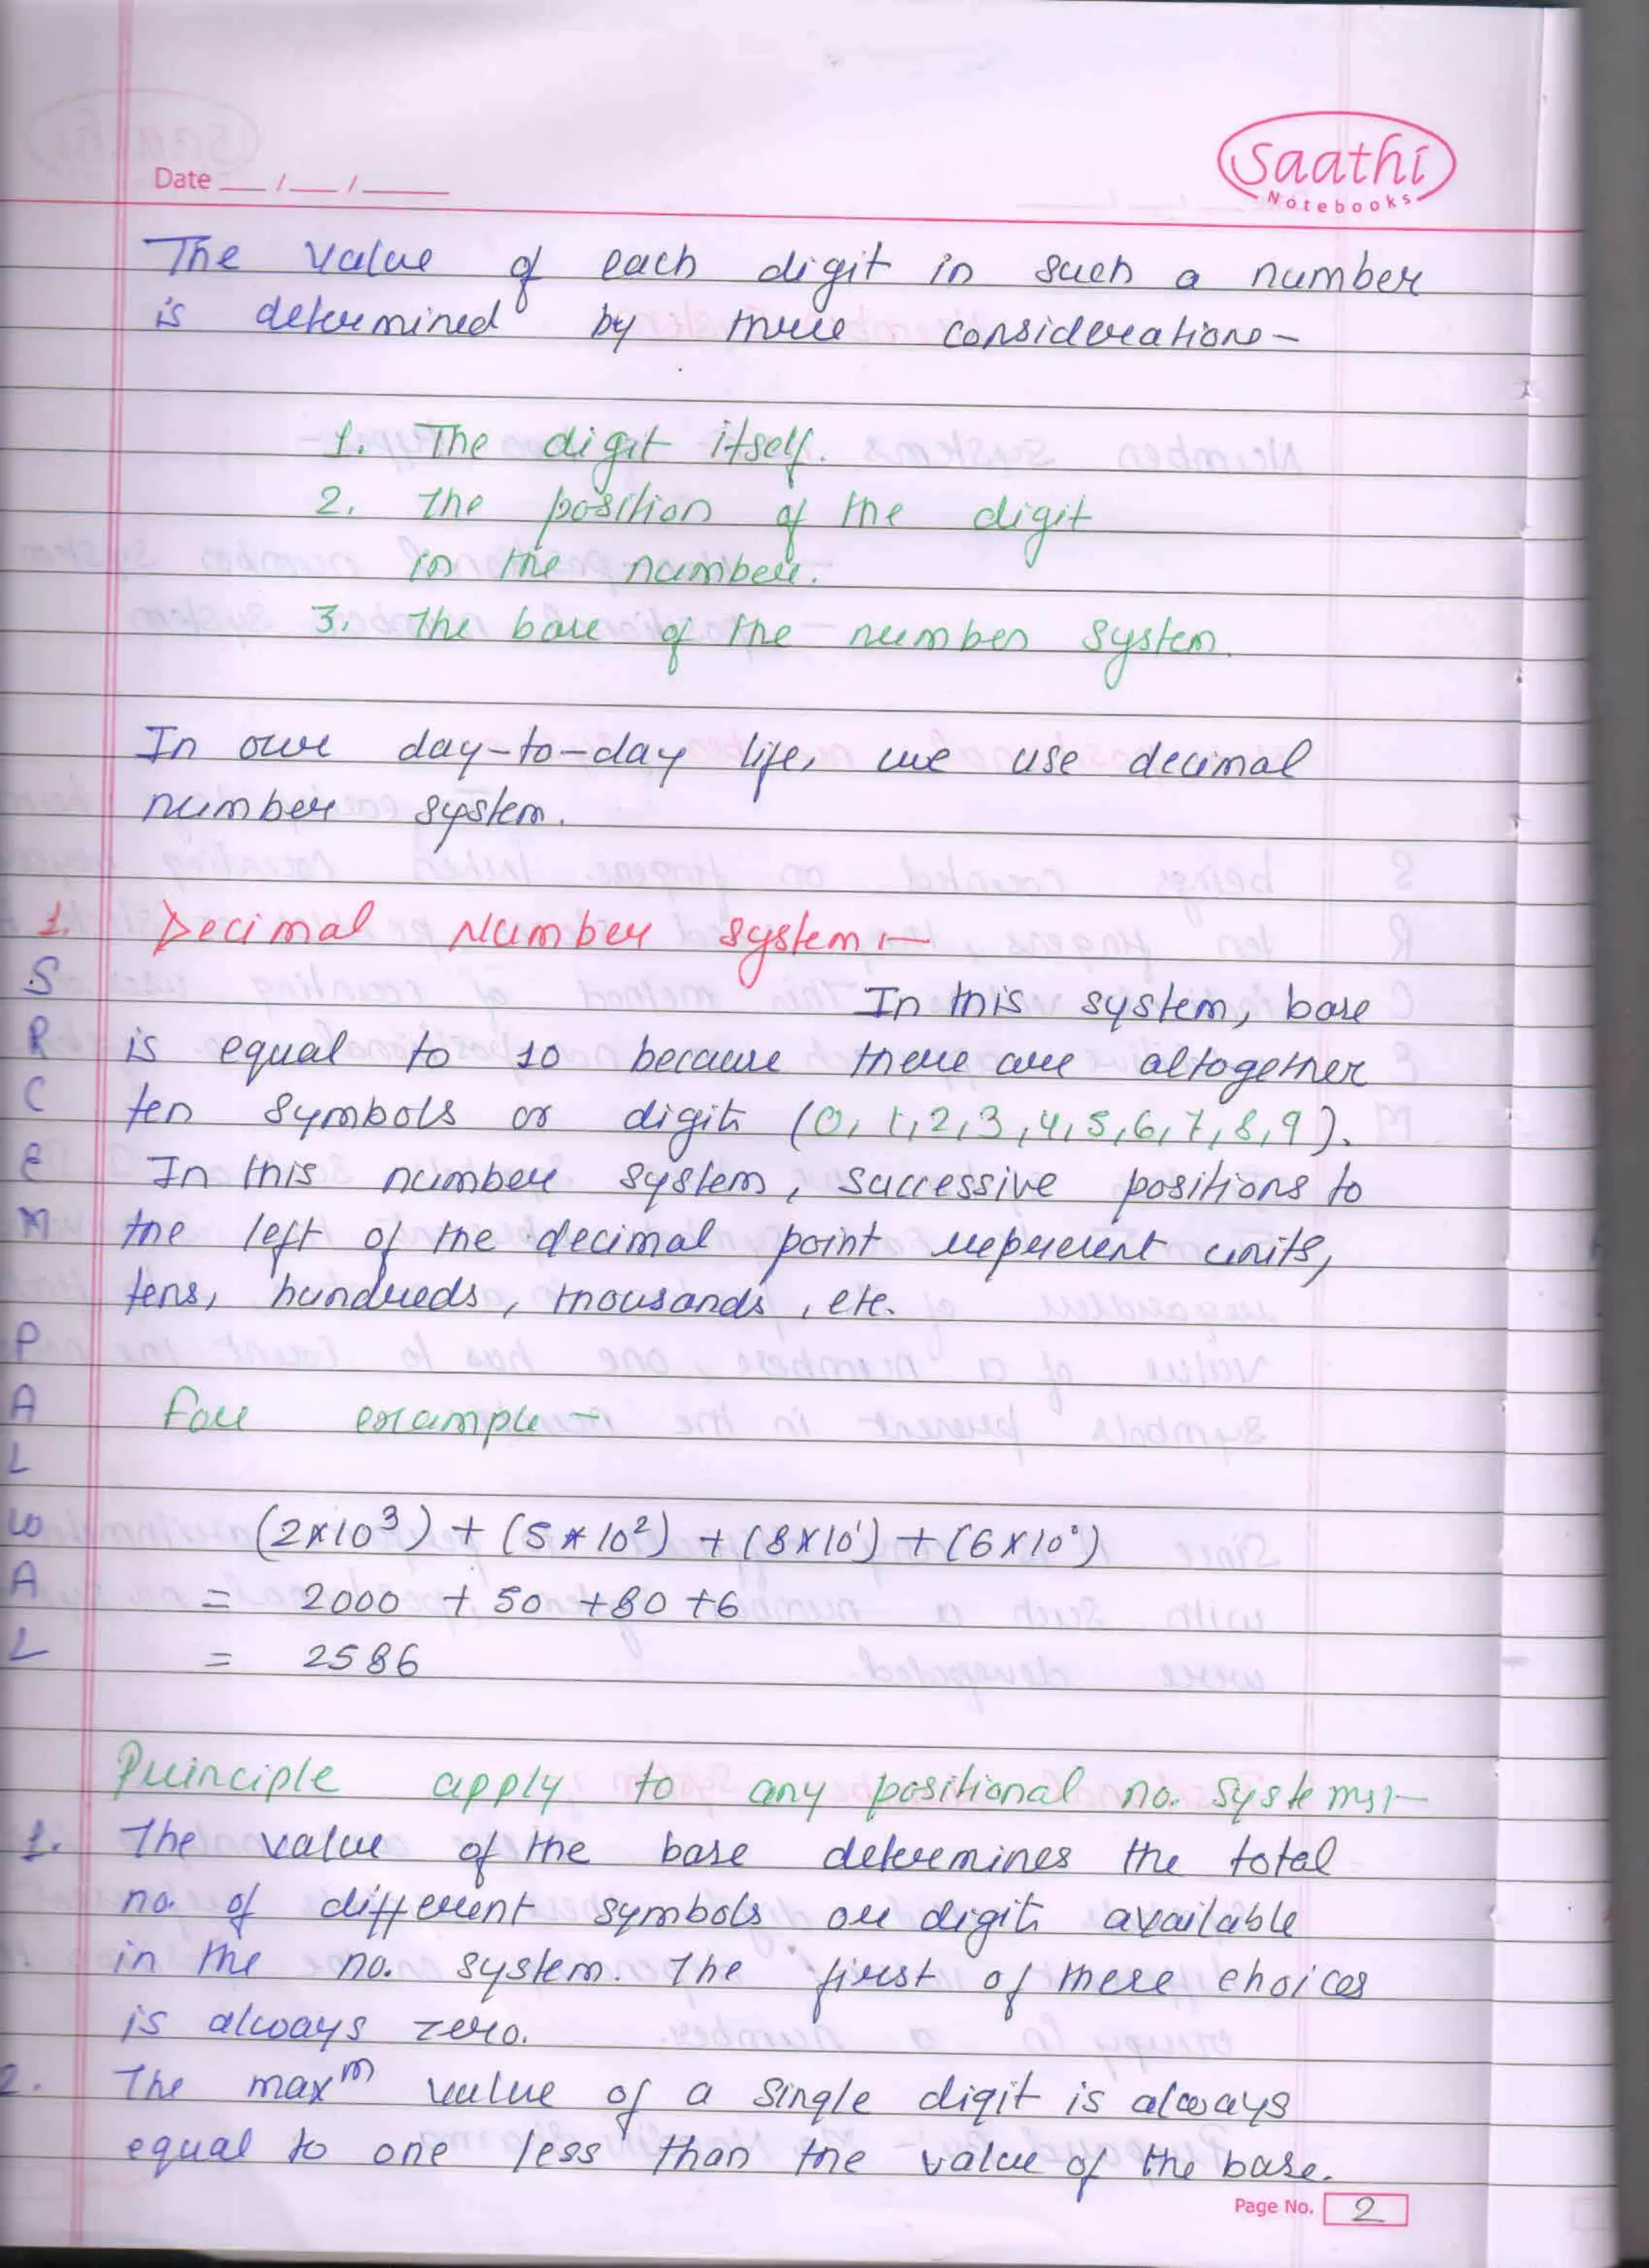 Saathi
Notebooks
Date __/__/____
The value of each digit in such a number
is determined by three considerations-
1. The digit itself.
2. The position of the digit
in the number.
3. The base of the number system.
In our day-to-day life, we use decimal
number system.
1. Decimal Number System:-
In this system, base
is equal to 10 because there are altogether
ten symbols or digits (0,1,2,3,4,5,6,7,8,9).
In this number system, successive positions to
the left of the decimal point represent units,
tens, hundreds, thousands, etc.
For example-
(2×10³) + (5*10²) + (8×10¹) + (6×10⁰)
= 2000 + 50 +80 +6
= 2586
Principle apply to any positional no. systems:-
1. The value of the base determines the total
no. of different symbols or digits available
in the no. system. The first of these choices
is always zero.
2. The maxᵐ value of a single digit is always
equal to one less than the value of the base.
S
R
C
E
M
P
A
L
W
A
L
Page No. 2